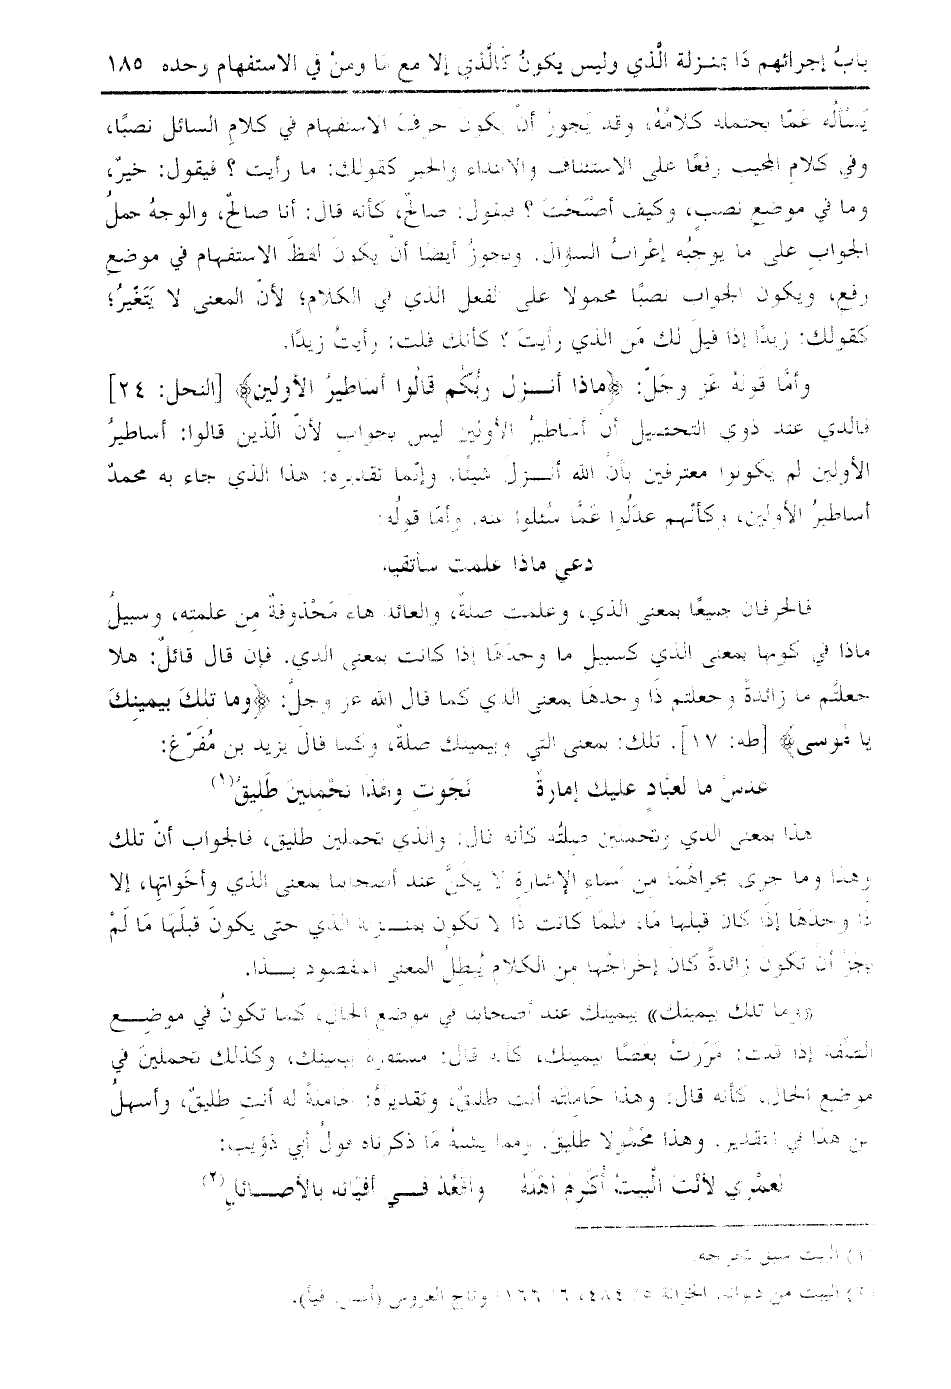 بابُ إجرائهم ذَا بمنـزلة الَّذي وليس يكونُ كَالَّذي إلا مع مَا ومنْ في الاستفهام وحده ١٨٥
يَسألُه عَمّا يحتمله كلامُهُ، وقد يَجوزُ أنْ يكونَ حرفُ الاستفهام في كلامِ السائل نصبًا،
وفي كلام المجيب رفعًا على الاستئناف والابتداء والخبر كقولك: ما رأيت ؟ فيقول: خيرٌ،
وما في موضعِ نصبٍ، وكيف أصْبَحْتَ ؟ فيقول: صالحٌ، كأنه قال: أنا صالحٌ، والوجهُ حملُ
الجوابِ على ما يوجبُه إعْرابُ السؤال. ويجوزُ أيضًا أنْ يكونَ لفظُ الاستفهام في موضعِ
رفعٍ، ويكون الجواب نصبًا محمولا على الفعل الذي في الكلام؛ لأنّ المعنى لا يَتَغّيرُ؛
كقولك: زيدًا إذا قيلَ لك مَن الذي رأيتَ ؟ كأنك قلت: رأيتُ زيدًا.
وأمَّا قولهُ عَز وجَلّ: ﴿ماذا أنــزل ربُّكُم قالُوا أساطيرُ الأولين﴾ [النحل: ٢٤]
فالذي عند ذوي التحصيل أنّ أساطيرُ الأولين ليس بجوابٍ لأنّ الّذين قالوا: أساطيرُ
الأولين لم يكونوا معترفين بأنّ الله أنــزلَ شيئًا، وإنّما تقديره: هذا الذي جاء به محمدٌ
أساطيرُ الأولين، وكأنّهم عدَلُوا عَمَّا سُئلوا عنه. وأمّا قولُه:
دعي ماذا علمت سأتقيه
فالحرفان جميعًا بمعنى الذي، وعلمت صلةٌ، والعائد هاءٌ مَحْذوفةٌ مِن علمتِه، وسبيلُ
ماذا في كونها بمعنى الذي كسبيل ما وحدَهَا إذا كانت بمعنى الذي. فإن قال قائلٌ: هلا
جعلتُم ما زائدةً وجعلتم ذَا وحدهَا بمعنى الذي كما قال الله عز وجلّ: ﴿وما تلكَ بيمينِكَ
يا مُوسى﴾ [طه: ١٧]. تلك: بمعنى التي وبيمينك صلةٌ، وكما قالَ يزيد بن مُفَرّغ:
عدسْ ما لعبّادٍ عليك إمارةٌ نَجَوتِ وهَذا تحْمِلينَ طَليقُ(١)
هذا بمعنى الذي وتحملين صِلتُه كأنه قال: والذي تحملين طليق، فالجواب أنّ تلك
وهذا وما جرى مجراهُمَا من أسماءِ الإشارةِ لا يكُنَّ عند أصحابنا بمعنى الذي وأخَواتِها، إلا
ذَا وحدَهَا إذَا كان قبلها مَا، فلمّا كانت ذا لا تكون بمنــزلة الذي حتى يكونَ قبلَهَا مَا لَمْ
يجُزْ أن تكون زائدةً كان إخراجُها من الكلام يُبطلُ المعنى المقصود بــذا.
«وما تلك بيمينك» بيمينك عند أصحابنا في موضع الحال، كما تكونُ في موضِــعِ
الصّفة إذا قلت: مَرَرتُ بعَصًا بيمينِك، كأنه قال: مستقرة بيمينك، وكذلك تحملينَ في
موضع الحال. كأنه قال: وهذا حَاملتَه أنت طليقٌ، وتقديرهُ: حاملةً له أنتِ طليقٌ، وأسهلُ
من هذا في التقدير. وهذا مَحْمُولا طليقٌ. ومما يشبهُ مَا ذكرناه قولُ أبي ذؤيب:
لَعمْري لأنْتَ الْبيتُ أُكْرِمُ أهْلَهُ وأقْعُدُ فــي أفيَائه بالأصــائلِ(٢)
(١) البيت سبق تخريجه.
(٢) البيت من ديوانه. الخزانة ٥/ ٤٨٤، ٦/ ١٦٦، وتاج العروس (أصل، فيأ).